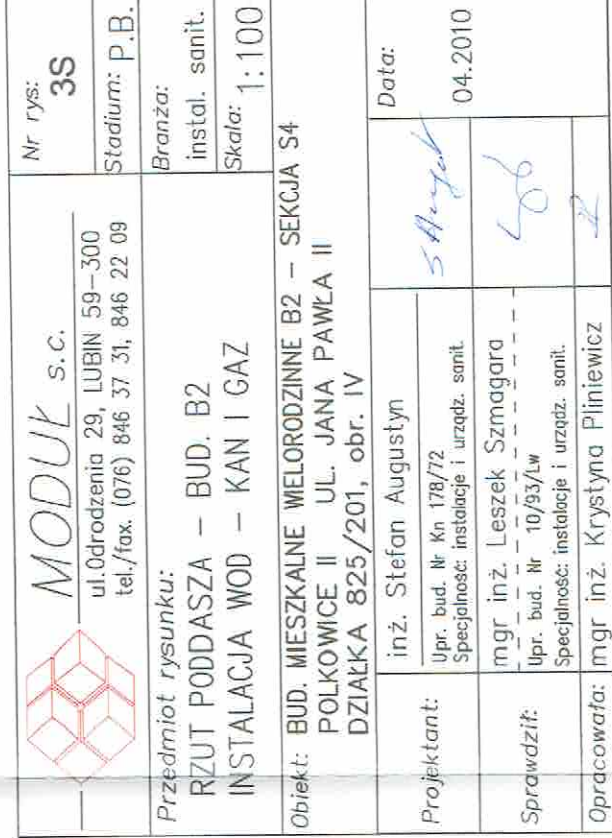 MODUŁ s.c.
ul.Odrodzenia 29, LUBIN 59-300
tel./fax. (076) 846 37 31, 846 22 09
Nr rys:
3S
Stadium: P.B.
Przedmiot rysunku:
RZUT PODDASZA - BUD. B2
INSTALACJA WOD - KAN I GAZ
Branża:
instal. sanit.
Skala: 1:100
Obiekt: BUD. MIESZKALNE WIELORODZINNE B2 - SEKCJA S4
POLKOWICE II UL. JANA PAWŁA II
DZIAŁKA 825/201, obr. IV
Projektant:
inż. Stefan Augustyn
Upr. bud. Nr Kn 178/72
Specjalność: instalacje i urządz. sanit.
Data:
04.2010
Sprawdził:
mgr inż. Leszek Szmagara
Upr. bud. Nr 10/93/Lw
Specjalność: instalacje i urządz. sanit.
Opracowała: mgr inż. Krystyna Pliniewicz